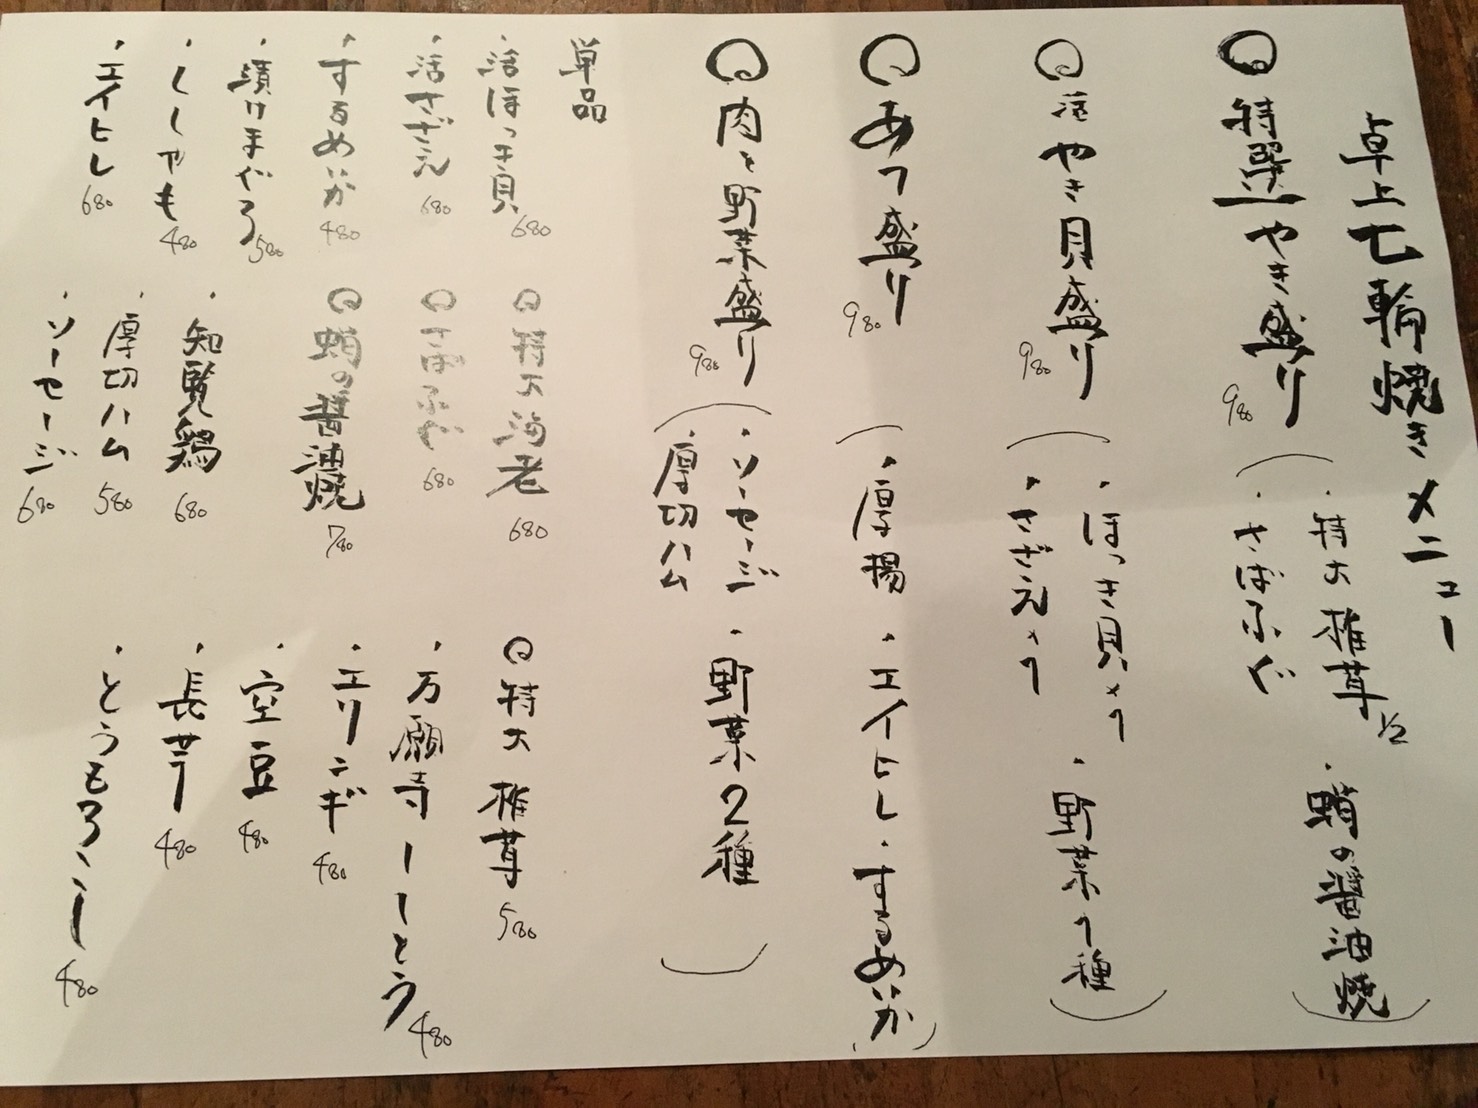 卓上七輪焼きメニュー
特選やき盛り 980
・特大椎茸1/2 ・蛸の醤油焼
・さばふぐ
活やき貝盛り 980
・ほっき貝×1 ・野菜1種
・さざえ×1
あて盛り 980
・厚揚 ・エイヒレ・するめいか
肉と野菜盛り 980
・ソーセージ ・野菜2種
・厚切ハム
単品
・活ほっき貝 680
・活さざえ 680
・するめいか 480
・漬けまぐろ 580
・ししゃも 480
・エイヒレ 680
特大海老 680
さばふぐ 680
蛸の醤油焼 780
・知覧鶏 680
・厚切ハム 580
・ソーセージ 680
特大椎茸 580
・万願寺しーとう 480
・エリンギ 480
・空豆 480
・長芋 480
・とうもろこし 480